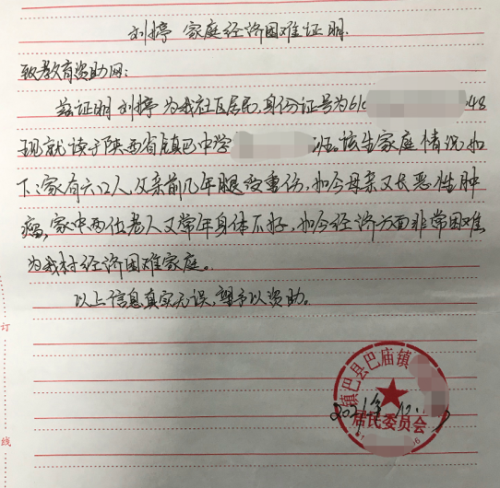 刘婷 家庭经济困难证明
致教育资助网:
兹证明 刘婷 为我社区居民,身份证号为61 48
现就读于陕西省镇巴中学 班。该生家庭情况如
下:家有六口人,父亲前几年腿受重伤,如今母亲又长恶性肿
瘤,家中两位老人又常年身体不好,如今经济方面非常困难,
为我村经济困难家庭。
以上信息真实无误,望予以资助。
镇巴县巴庙镇
居民委员会
订
线